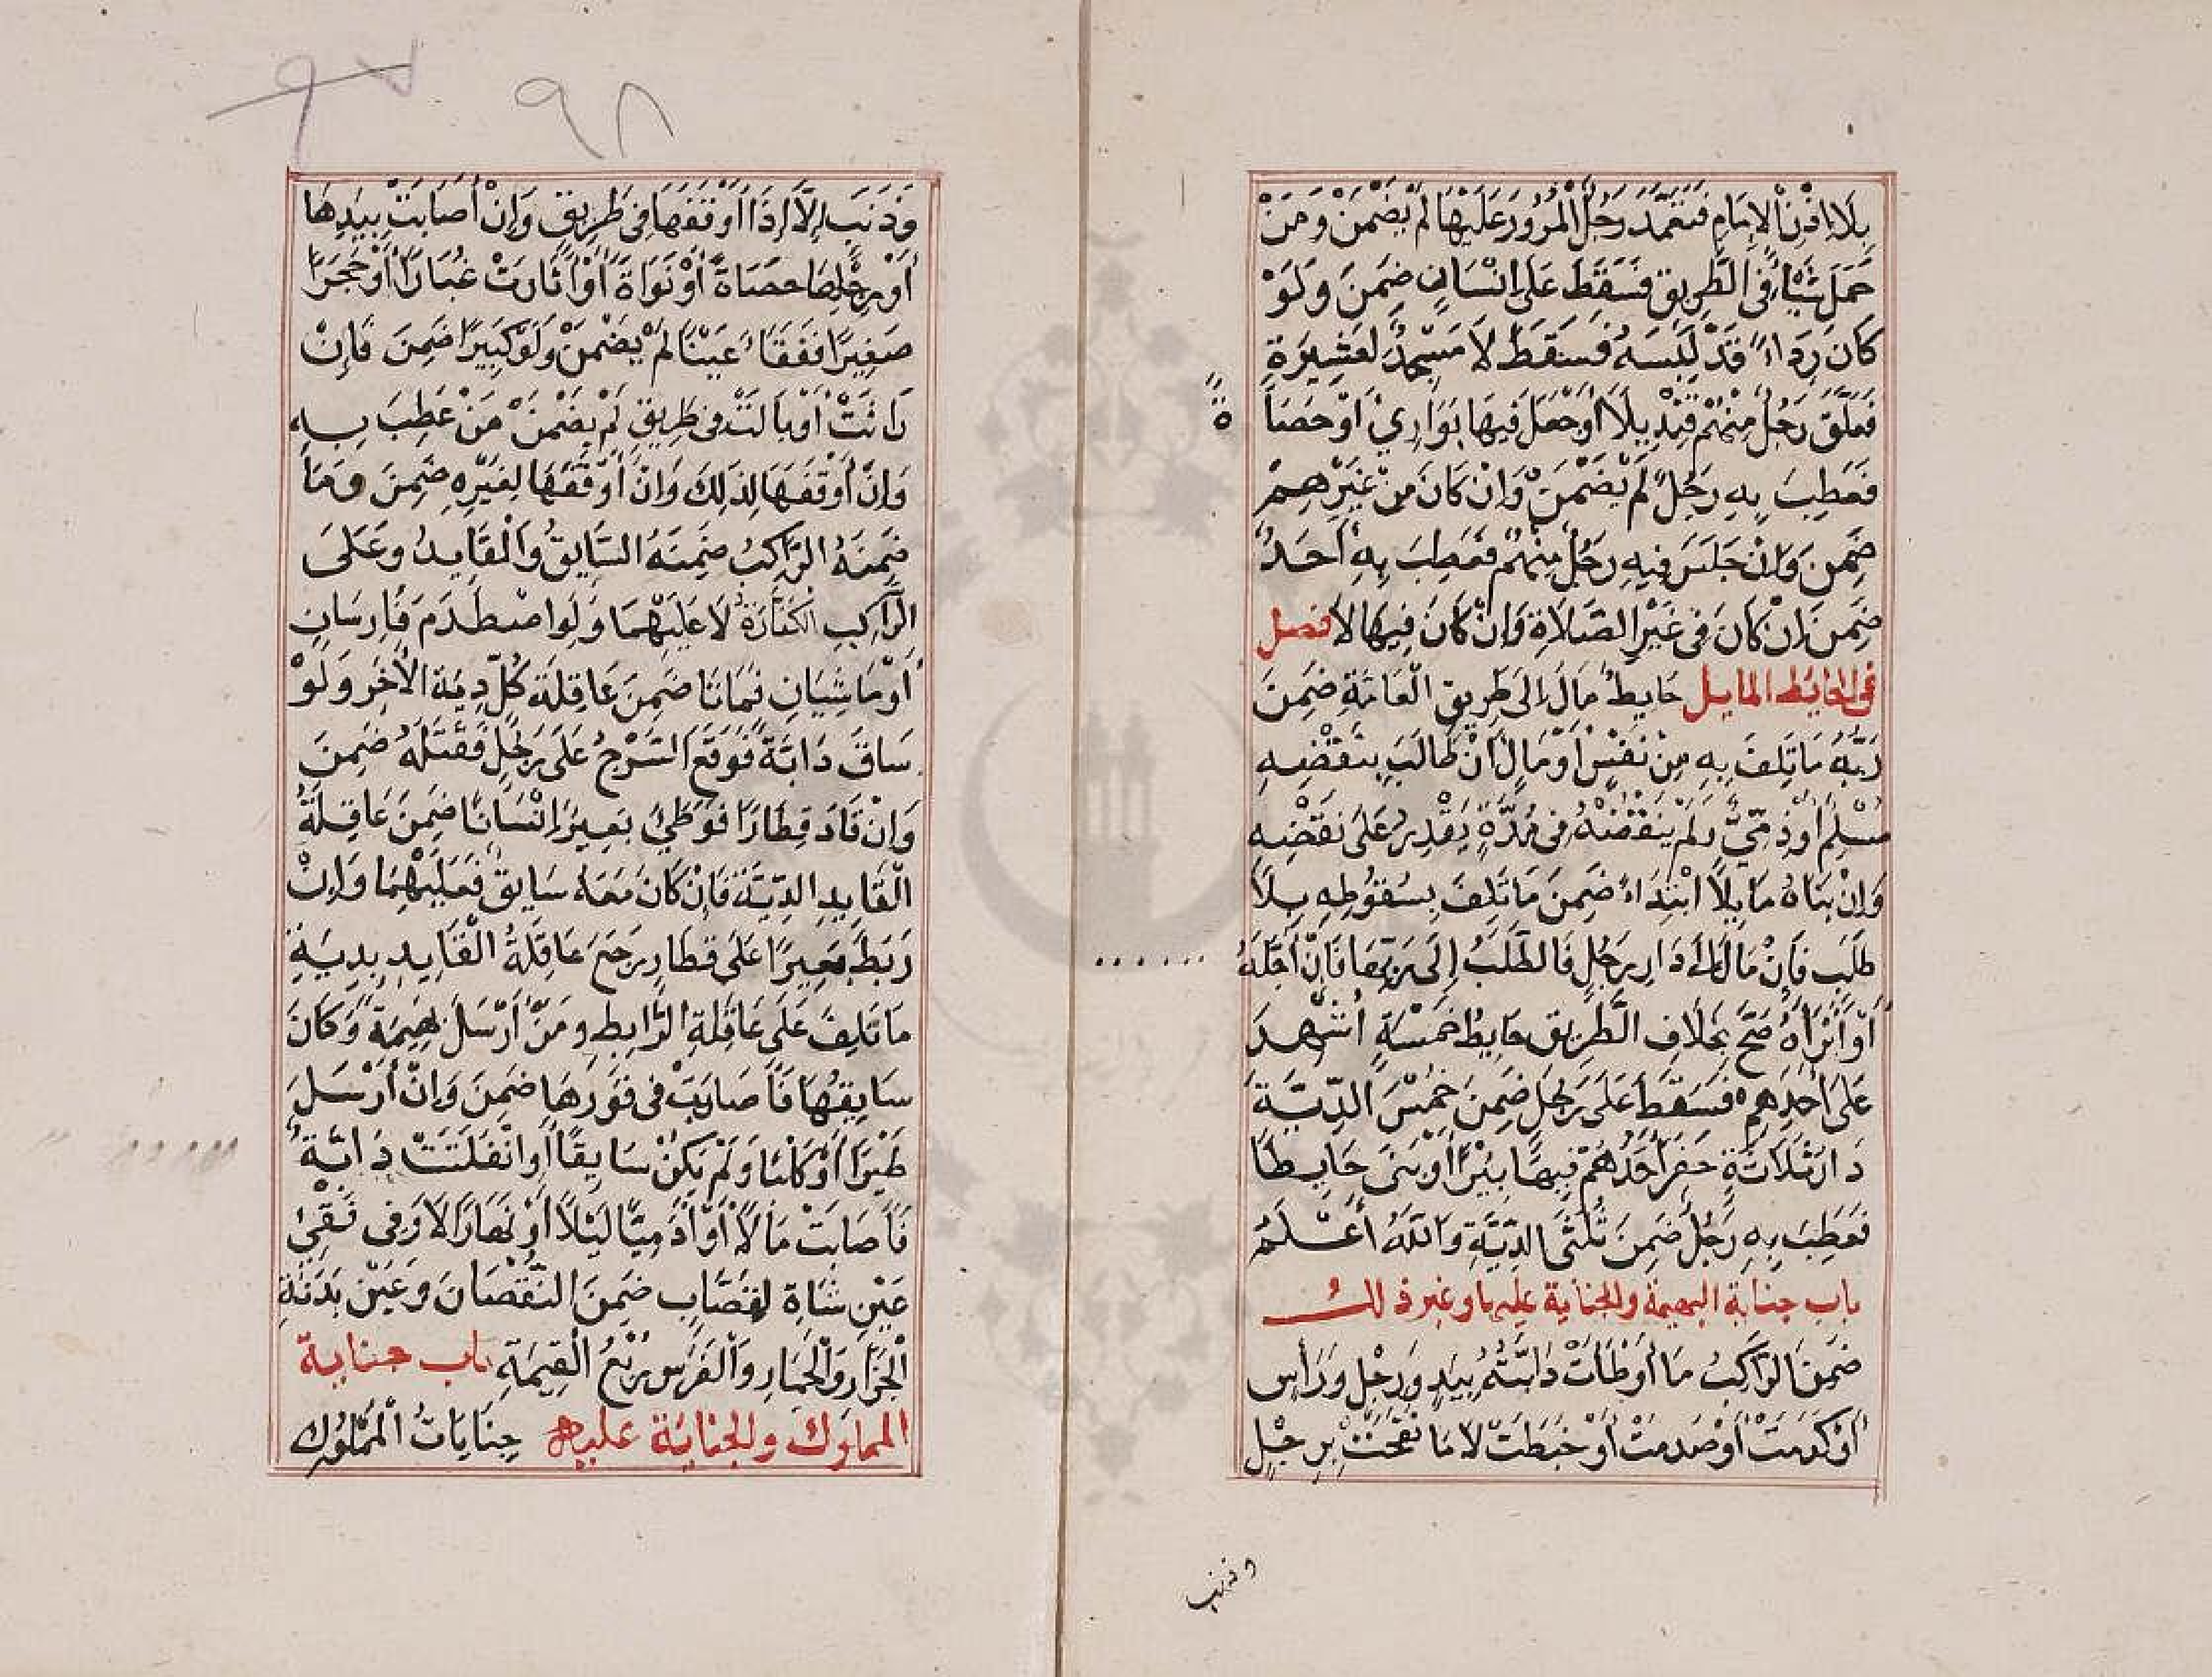 بِلَا إِذْنِ الْإِمَامِ فَتَعَمَّدَ رَجُلٌ الْمُرُورَ عَلَيْهَا لَمْ يَضْمَنْ وَمَنْ
حَمَلَ شَيْأً فِي الطَّرِيقِ فَسَقَطَ عَلَى إِنْسَانٍ ضَمِنَ وَلَوْ
كَانَ رِدَاءً قَدْ لَبِسَهُ فَسَقَطَ لَا مَسْجِدٌ لِعَشِيرَةٍ
فَعَلَّقَ رَجُلٌ مِنْهُمْ قِنْدِيلًا أَوْ جَعَلَ فِيهَا بَوَارِيَ أَوْ حَصَاةً
فَعَطِبَ بِهِ رَجُلٌ لَمْ يَضْمَنْ وَإِنْ كَانَ مِنْ غَيْرِهِمْ
ضَمِنَ وَإِنْ جَلَسَ فِيهِ رَجُلٌ مِنْهُمْ فَعَطِبَ بِهِ أَحَدٌ
ضَمِنَ إِنْ كَانَ فِي غَيْرِ الصَّلَاةِ وَإِنْ كَانَ فِيهَا لَا فصل
في الحايط المايل حَايِطٌ مَالَ إِلَى طَرِيقِ الْعَامَّةِ ضَمِنَ
رَبُّهُ مَا تَلِفَ بِهِ مِنْ نَفْسٍ أَوْ مَالٍ إِنْ طَالَبَ بِنَقْضِهِ
مُسْلِمٌ أَوْ ذِمِّيٌّ وَلَمْ يَنْقُضْهُ فِي مُدَّةٍ يَقْدِرُ عَلَى نَقْضِهِ
وَإِنْ بَنَاهُ مَايِلًا ابْتِدَاءً ضَمِنَ مَا تَلِفَ بِسُقُوطِهِ بِلَا
طَلَبٍ فَإِنْ مَالَ إِلَى دَارِ رَجُلٍ فَالطَّلَبُ إِلَى رَبِّهَا فَإِنْ أَجَّلَهُ
أَوْ أَبْرَأَهُ صَحَّ بِخِلَافِ الطَّرِيقِ حَايِطُ خَمْسَةٍ أُشْهِدَ
عَلَى أَحَدِهِمْ فَسَقَطَ عَلَى رَجُلٍ ضَمِنَ خُمْسَ الدِّيَّةِ
دَارُ ثَلَاثَةٍ حَفَرَ أَحَدُهُمْ فِيهَا بِيْرًا أَوْ بَنَى حَايِطًا
فَعَطِبَ بِهِ رَجُلٌ ضَمِنَ ثُلُثَيِ الدِّيَّةِ وَاللَّهُ أَعْلَمُ
باب جناية البهيمة والجناية عليها وغير ذلك
ضَمِنَ الرَّاكِبُ مَا أَوْطَأَتْ دَابَّتُهُ بِيَدٍ وَرِجْلٍ وَرَأْسٍ
أَوْ كَدَمَتْ أَوْ صَدَمَتْ أَوْ خَبَطَتْ لَا مَا نَفَحَتْ بِرِجْلٍ
وذنب
٩٨
٩٧
وَذَنَبٍ إِلَّا إِذَا أَوْقَفَهَا فِي طَرِيقٍ وَإِنْ أَصَابَتْ بِيَدِهَا
أَوْ رِجْلِهَا حَصَاةً أَوْ نَوَاةً أَوْ أَثَارَتْ غُبَارًا أَوْ حَجَرًا
صَغِيرًا فَفَقَأَ عَيْنًا لَمْ يَضْمَنْ وَلَوْ كَبِيرًا ضَمِنَ فَإِنْ
رَاثَتْ أَوْ بَالَتْ فِي طَرِيقٍ لَمْ يَضْمَنْ مَنْ عَطِبَ بِهِ
وَإِنْ أَوْقَفَهَا لِذَلِكَ وَإِنْ أَوْقَفَهَا لِغَيْرِهِ ضَمِنَ وَمَا
ضَمِنَهُ الرَّاكِبُ ضَمِنَهُ السَّايِقُ وَالْقَايِدُ وَعَلَى
الرَّاكِبِ الْكَفَّارَةُ لَا عَلَيْهِمَا وَلَوِ اصْطَدَمَ فَارِسَانِ
أَوْ مَاشِيَانِ فَمَاتَا ضَمِنَ عَاقِلَةُ كُلٍّ دِيَةَ الْآخَرِ وَلَوْ
سَاقَ دَابَّةً فَوَقَعَ السَّرْجُ عَلَى رَجُلٍ فَقَتَلَهُ ضَمِنَ
وَإِنْ قَادَ قِطَارًا فَوَطِئَ بَعِيرٌ إِنْسَانًا ضَمِنَ عَاقِلَةُ
الْقَايِدِ الدِّيَّةَ فَإِنْ كَانَ مَعَهُ سَايِقٌ فَعَلَيْهِمَا وَإِنْ
رَبَطَ بَعِيرًا عَلَى قِطَارٍ رَجَعَ عَاقِلَةُ الْقَايِدِ بِدِيَةِ
مَا تَلِفَ عَلَى عَاقِلَةِ الرَّابِطِ وَمَنْ أَرْسَلَ بَهِيمَةً وَكَانَ
سَايِقُهَا فَأَصَابَتْ فِي فَوْرِهَا ضَمِنَ وَإِنْ أَرْسَلَ
طَيْرًا أَوْ كَلْبًا وَلَمْ يَكُنْ سَايِقًا أَوِ انْفَلَتَتْ دَابَّةٌ
فَأَصَابَتْ مَالًا أَوْ آدَمِيًّا لَيْلًا أَوْ نَهَارًا لَا وَفِي فَقْئِ
عَيْنِ شَاةٍ لِقَصَّابٍ ضَمِنَ النُّقْصَانَ وَعَيْنِ بَدَنَةِ
الْجَزَّارِ وَالْحِمَارِ وَالْفَرَسِ رُبْعُ الْقِيمَةِ باب جناية
المملوك والجناية عليه جِنَايَاتُ الْمَمْلُوكِ